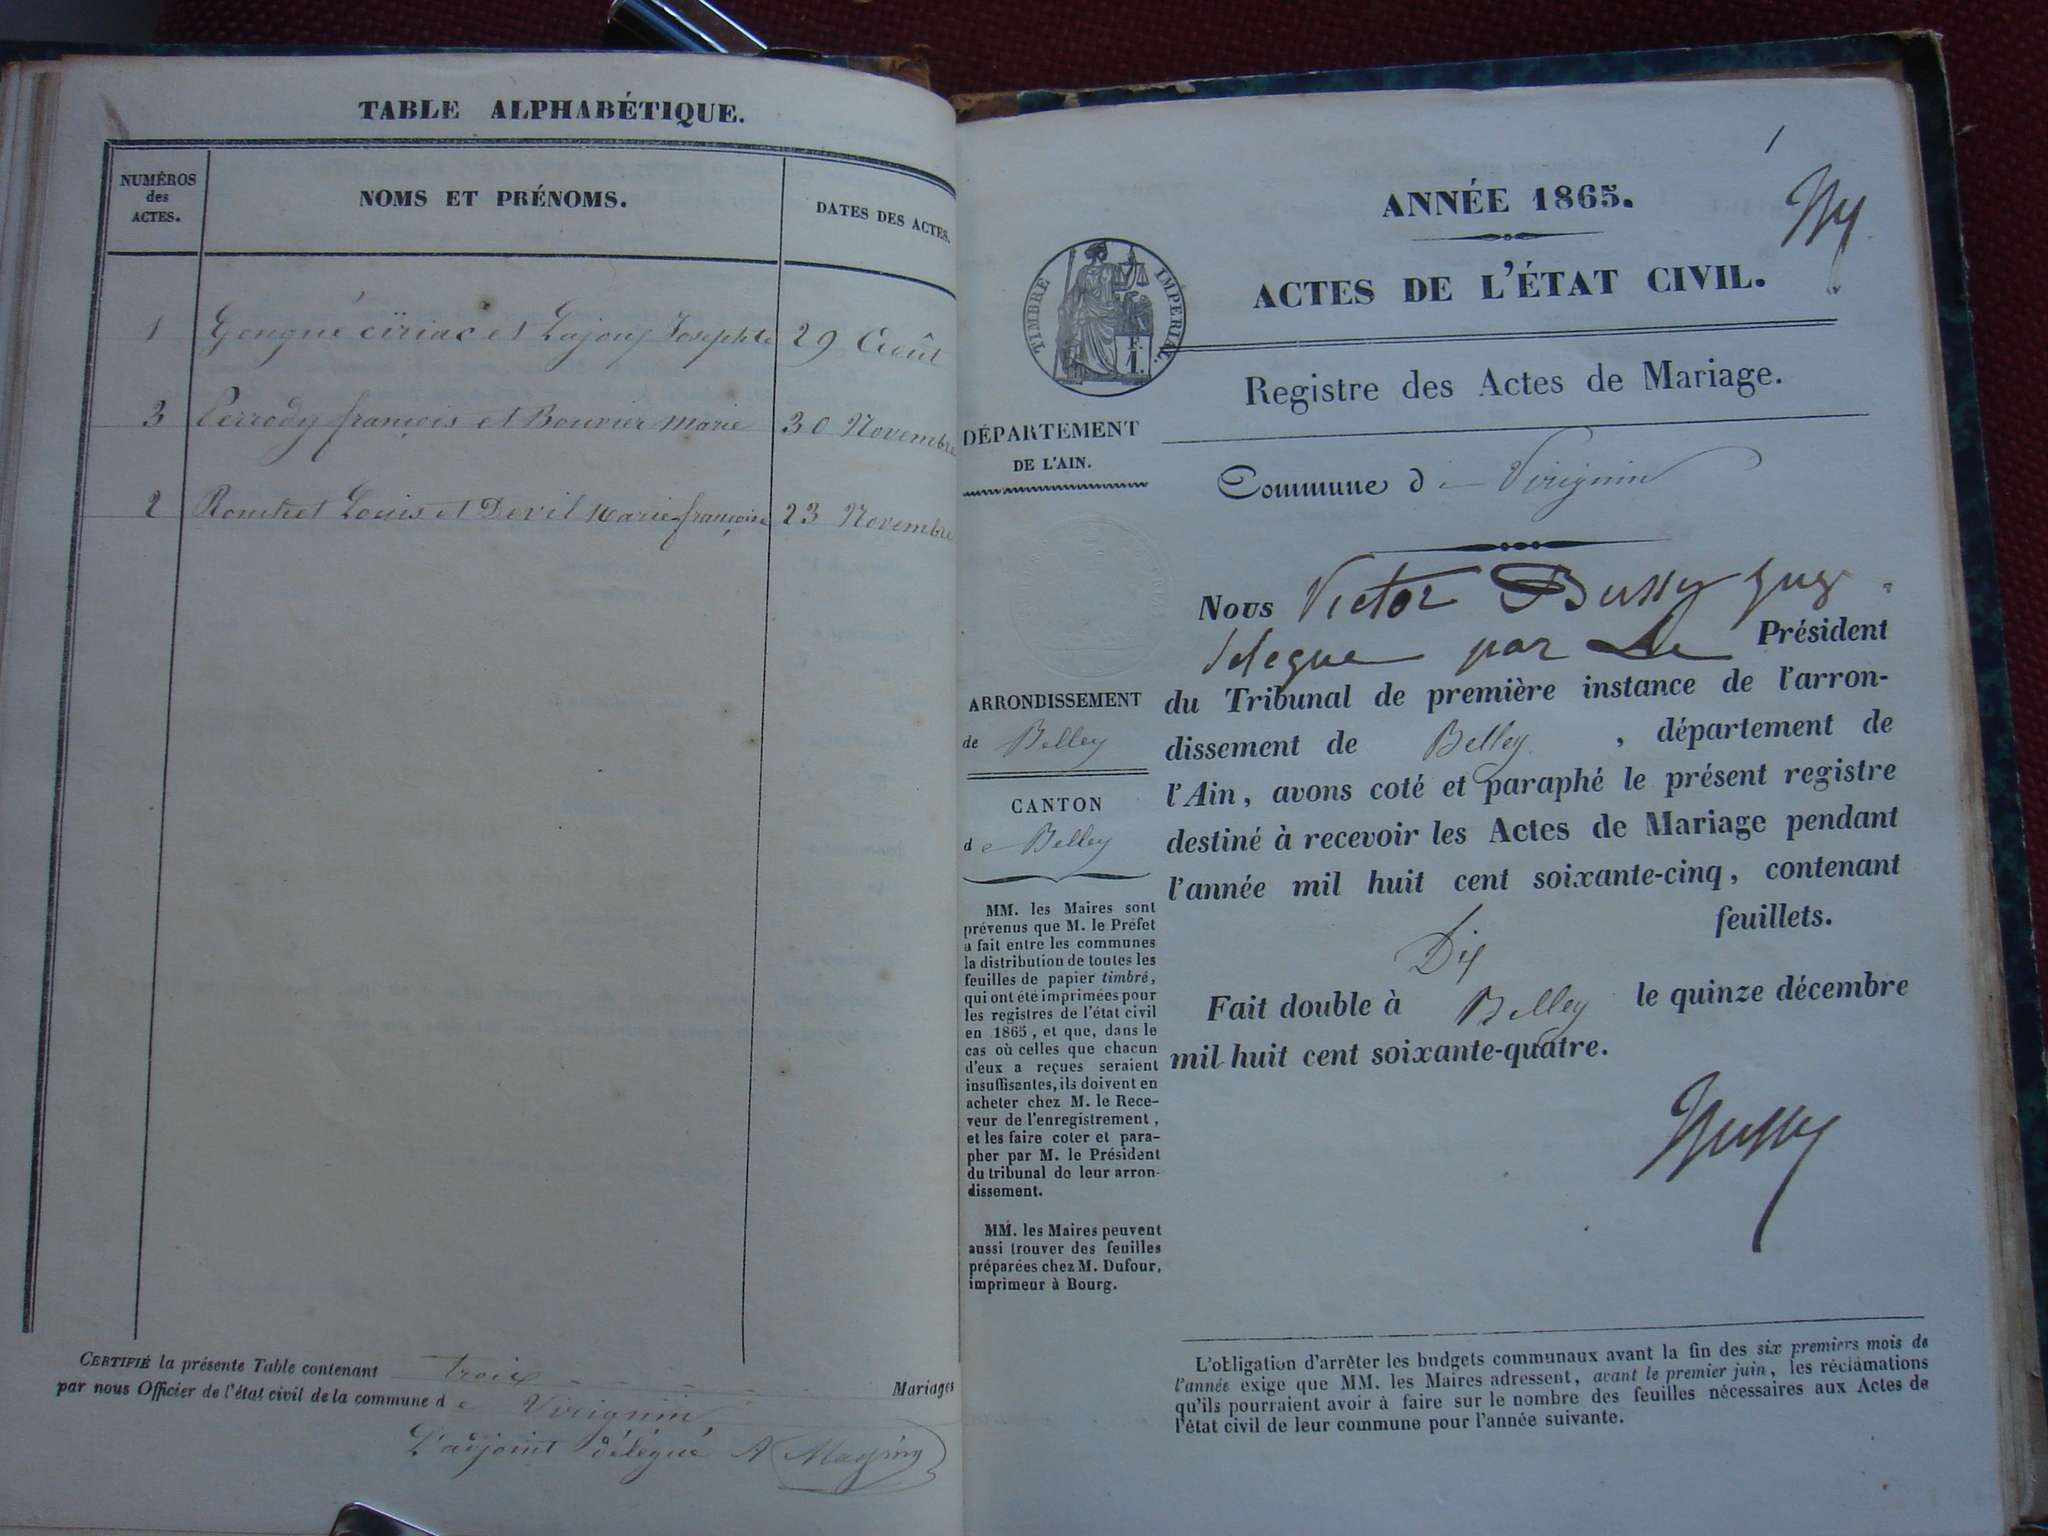 TABLE ALPHABÉTIQUE.
NUMÉROS
des
ACTES.
NOMS ET PRÉNOMS.
DATES DES ACTES.
1 Gengne ciriac et Lajouy Josephte 29 Août
3 Perrody françois et Bouvier marie 30 Novembre
2 Louis et Devil marie françoise 23 Novembre
CERTIFIÉ la présente Table contenant trois Mariages
par nous Officier de l'état civil de la commune de Virignin
L'adjoint délégué
1
ANNÉE 1865.
ACTES DE L'ÉTAT CIVIL.
TIMBRE IMPERIAL.
Registre des Actes de Mariage.
DÉPARTEMENT
DE L'AIN.
Commune de Virignin
ARRONDISSEMENT
de Belley
CANTON
de Belley
MM. les Maires sont
prévenus que M. le Préfet
a fait entre les communes
la distribution de toutes les
feuilles de papier timbré,
qui ont été imprimées pour
les registres de l'état civil
en 1865, et que, dans le
cas où celles que chacun
d'eux a reçues seraient
insuffisantes, ils doivent en
acheter chez M. le Rece-
veur de l'enregistrement,
et les faire coter et para-
pher par M. le Président
du tribunal de leur arron-
dissement.
MM. les Maires peuvent
aussi trouver des feuilles
préparées chez M. Dufour,
imprimeur à Bourg.
Nous Victor Bussy juge
delegue par Le Président
du Tribunal de première instance de l'arron-
dissement de Belley, département de
l'Ain, avons coté et paraphé le présent registre
destiné à recevoir les Actes de Mariage pendant
l'année mil huit cent soixante-cinq, contenant
Dix feuillets.
Fait double à Belley le quinze décembre
mil huit cent soixante-quatre.
Bussy
L'obligation d'arrêter les budgets communaux avant la fin des six premiers mois de
l'année exige que MM. les Maires adressent, avant le premier juin, les réclamations
qu'ils pourraient avoir à faire sur le nombre des feuilles nécessaires aux Actes de
l'état civil de leur commune pour l'année suivante.